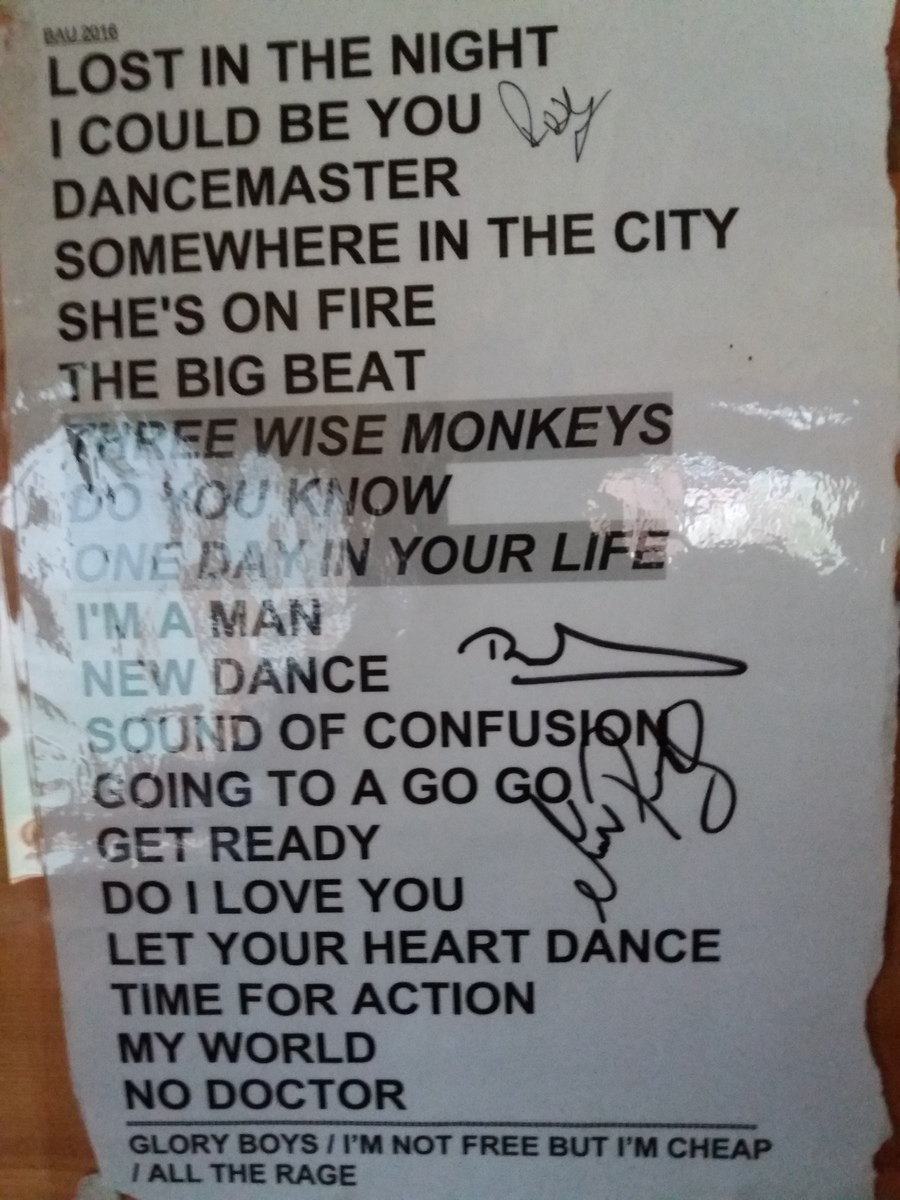 BAU 2016
LOST IN THE NIGHT
I COULD BE YOU
DANCEMASTER
SOMEWHERE IN THE CITY
SHE'S ON FIRE
THE BIG BEAT
THREE WISE MONKEYS
DO YOU KNOW
ONE DAY IN YOUR LIFE
I'M A MAN
NEW DANCE
SOUND OF CONFUSION
GOING TO A GO GO
GET READY
DO I LOVE YOU
LET YOUR HEART DANCE
TIME FOR ACTION
MY WORLD
NO DOCTOR
GLORY BOYS / I'M NOT FREE BUT I'M CHEAP
/ ALL THE RAGE